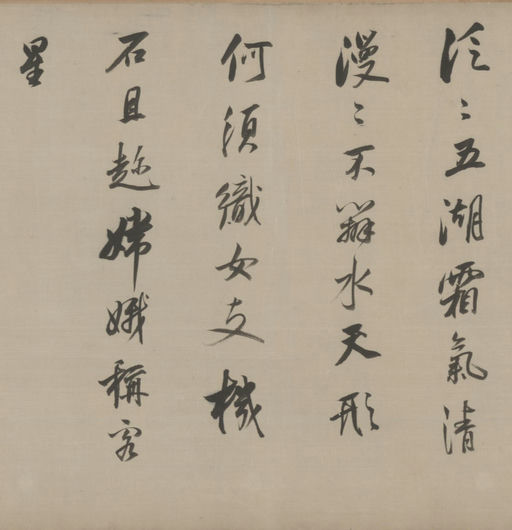 泛〻五湖霜氣清
漫〻不辨水天形
何須織女支機
石且趁嫦娥稱客
星